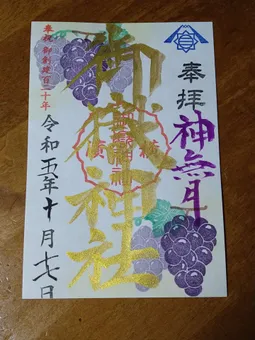 奉拝
神無月
御嶽神社
奉祝 御創建百三十年
令和五年十月十七日